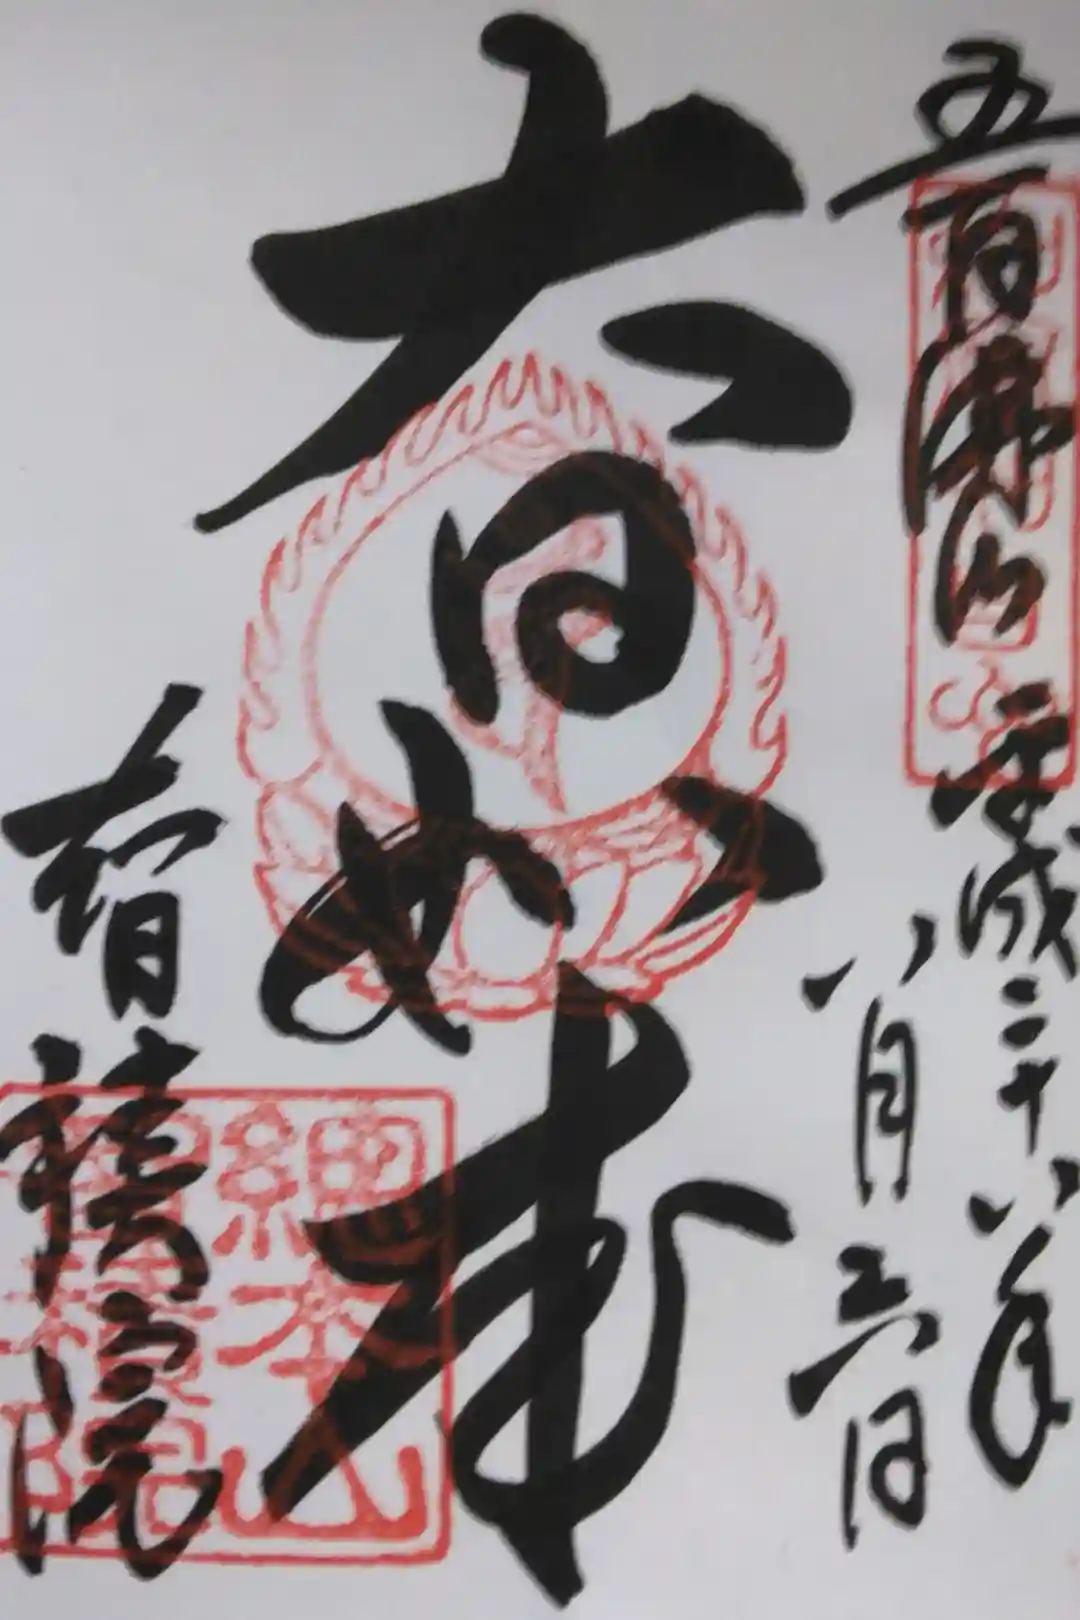 五百佛山
平成二十八年
八月二六日
大日如来
智積院
總本山
智積院